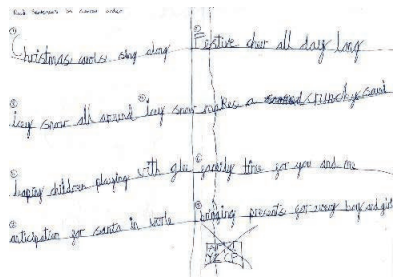 Read sentences in correct order
① Christmas carols sing along
② Festive cheer all day long
③ Icey snow all around
④ Icey snow makes a crunchy sound
⑤ Happy children playing with glee
⑥ family time for you and me
⑦ anticipation for santa in while
⑧ bringing presents for every boy and girl